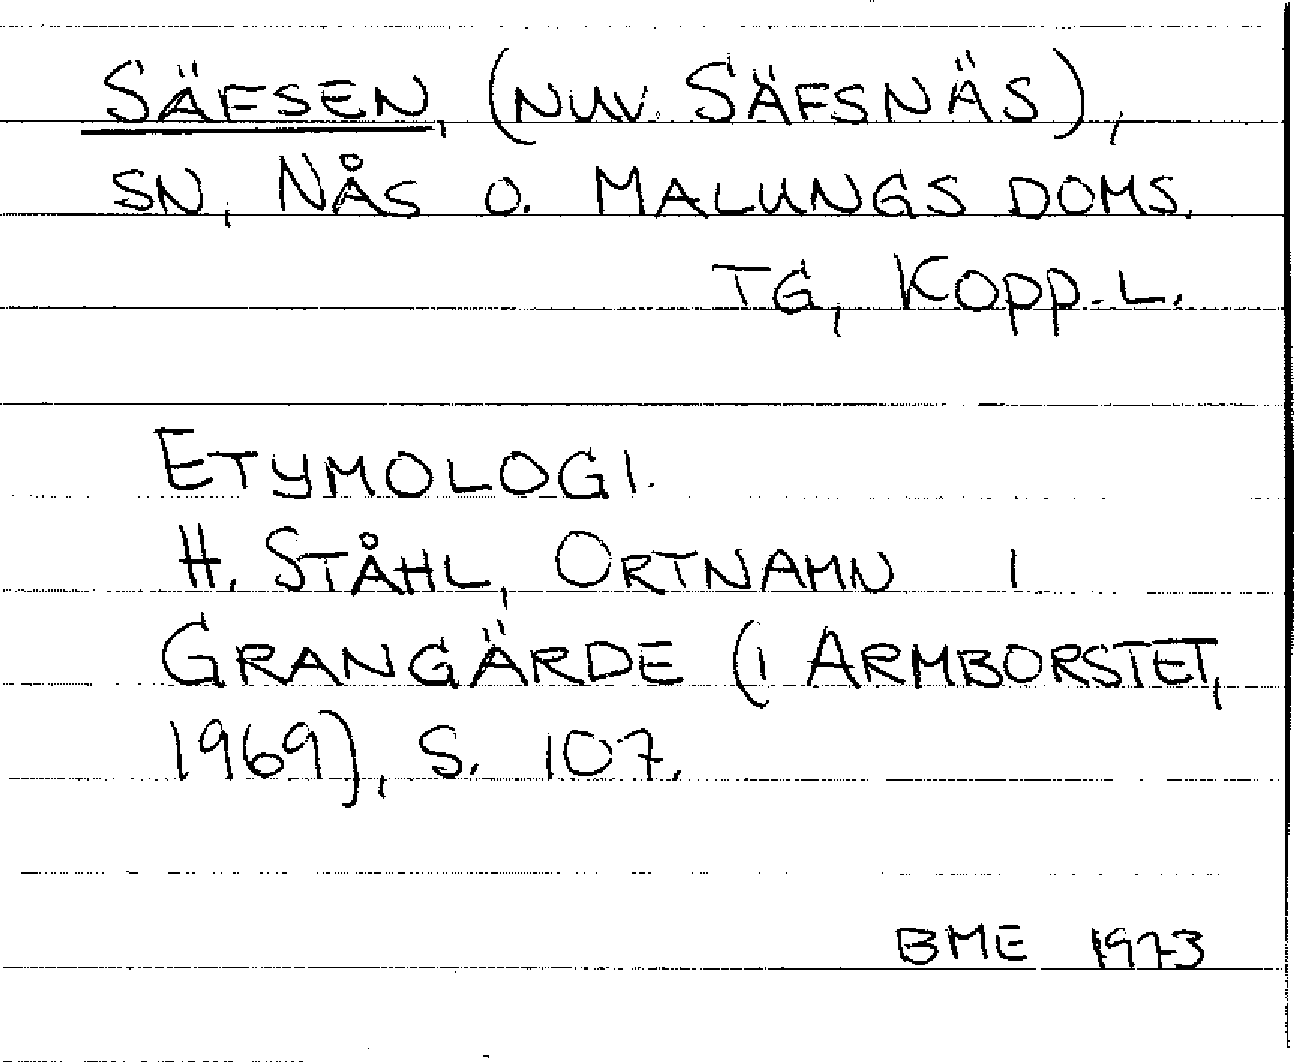 SÄFSEN, (NUV. SÄFSNÄS),
SN, NÅS O. MALUNGS DOMS.
TG, KOPP.L.
ETYMOLOGI.
H. STÅHL, ORTNAMN I
GRANGÄRDE (I ARMBORSTET,
1969), S. 107.
BME 1973